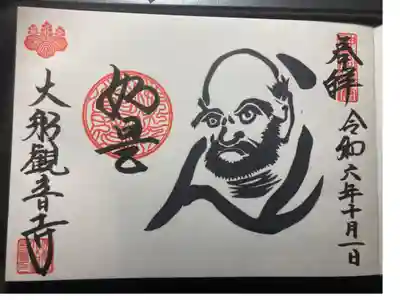 奉拝
令和六年十月一日
如是
大船觀音寺